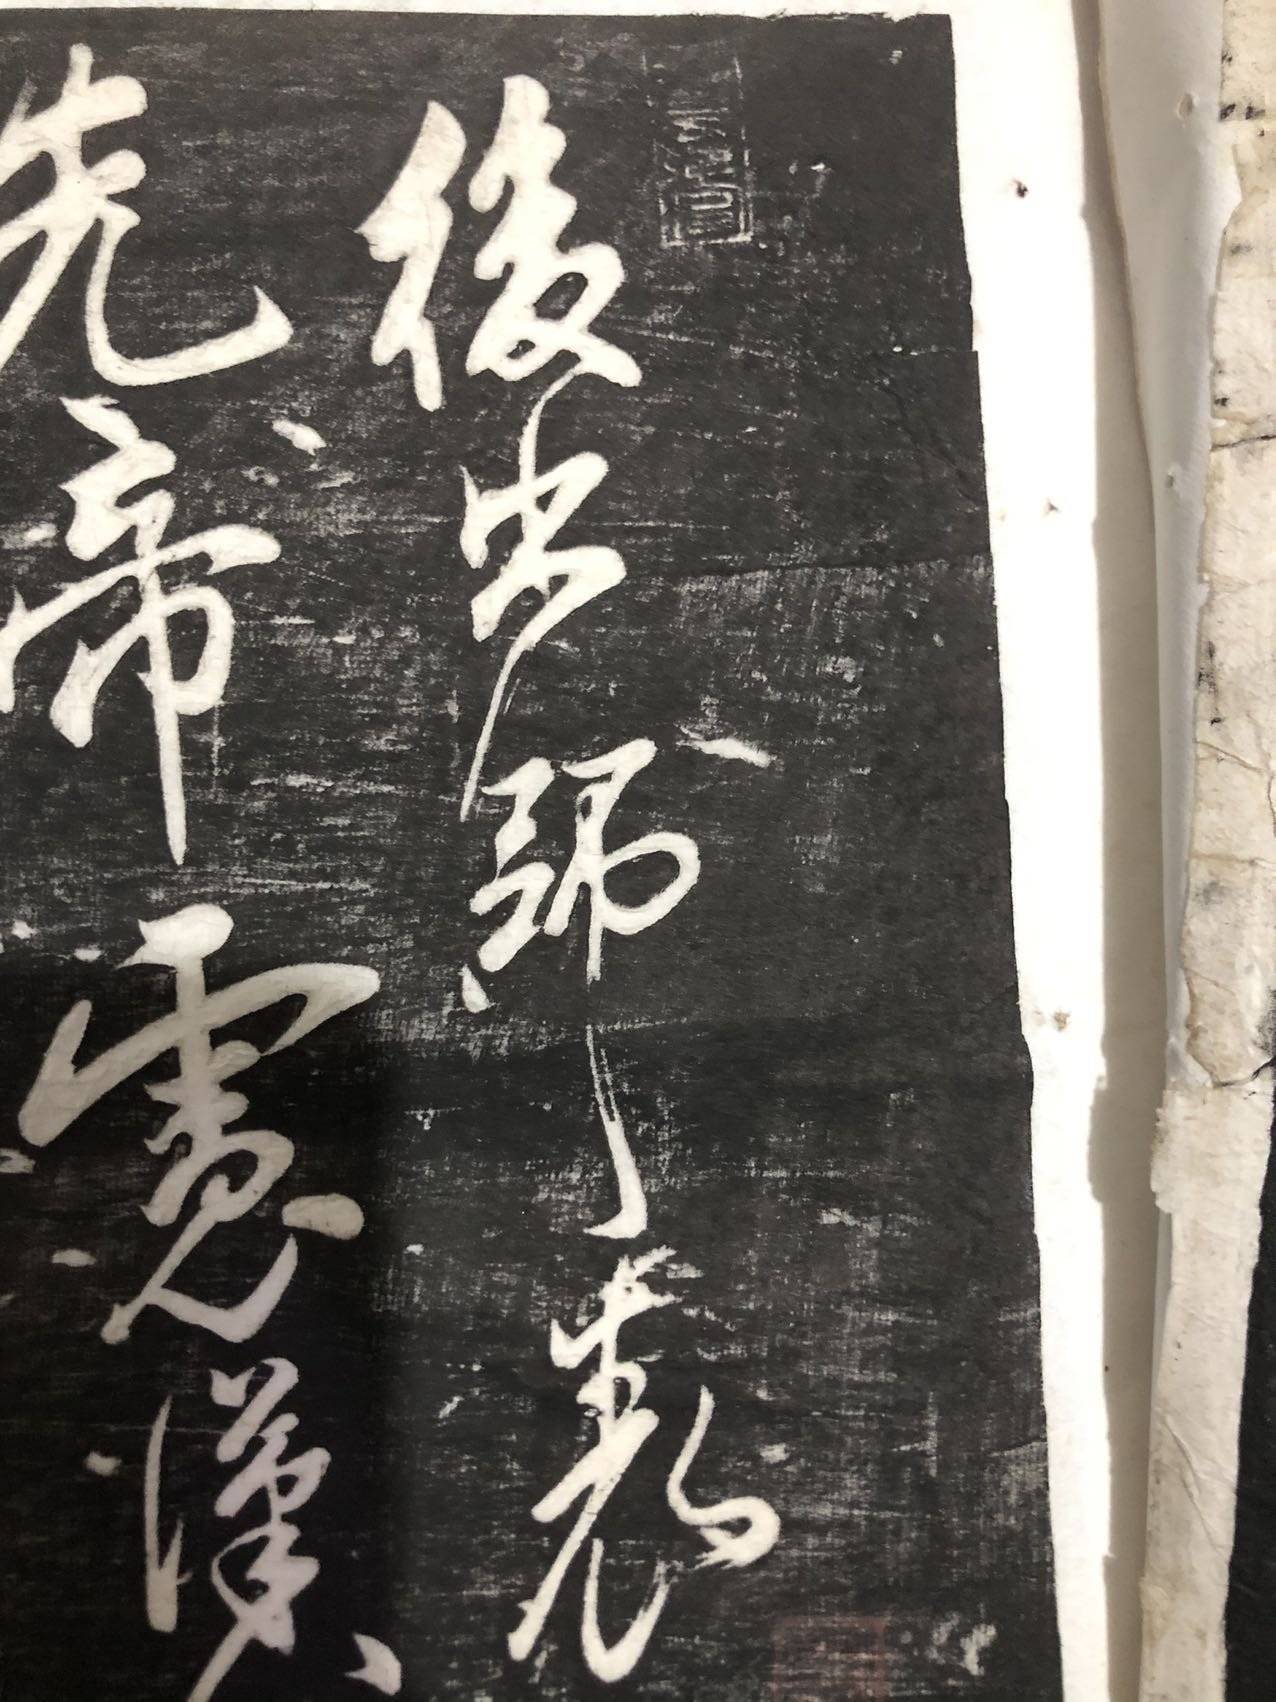 後出師表
先帝慮漢